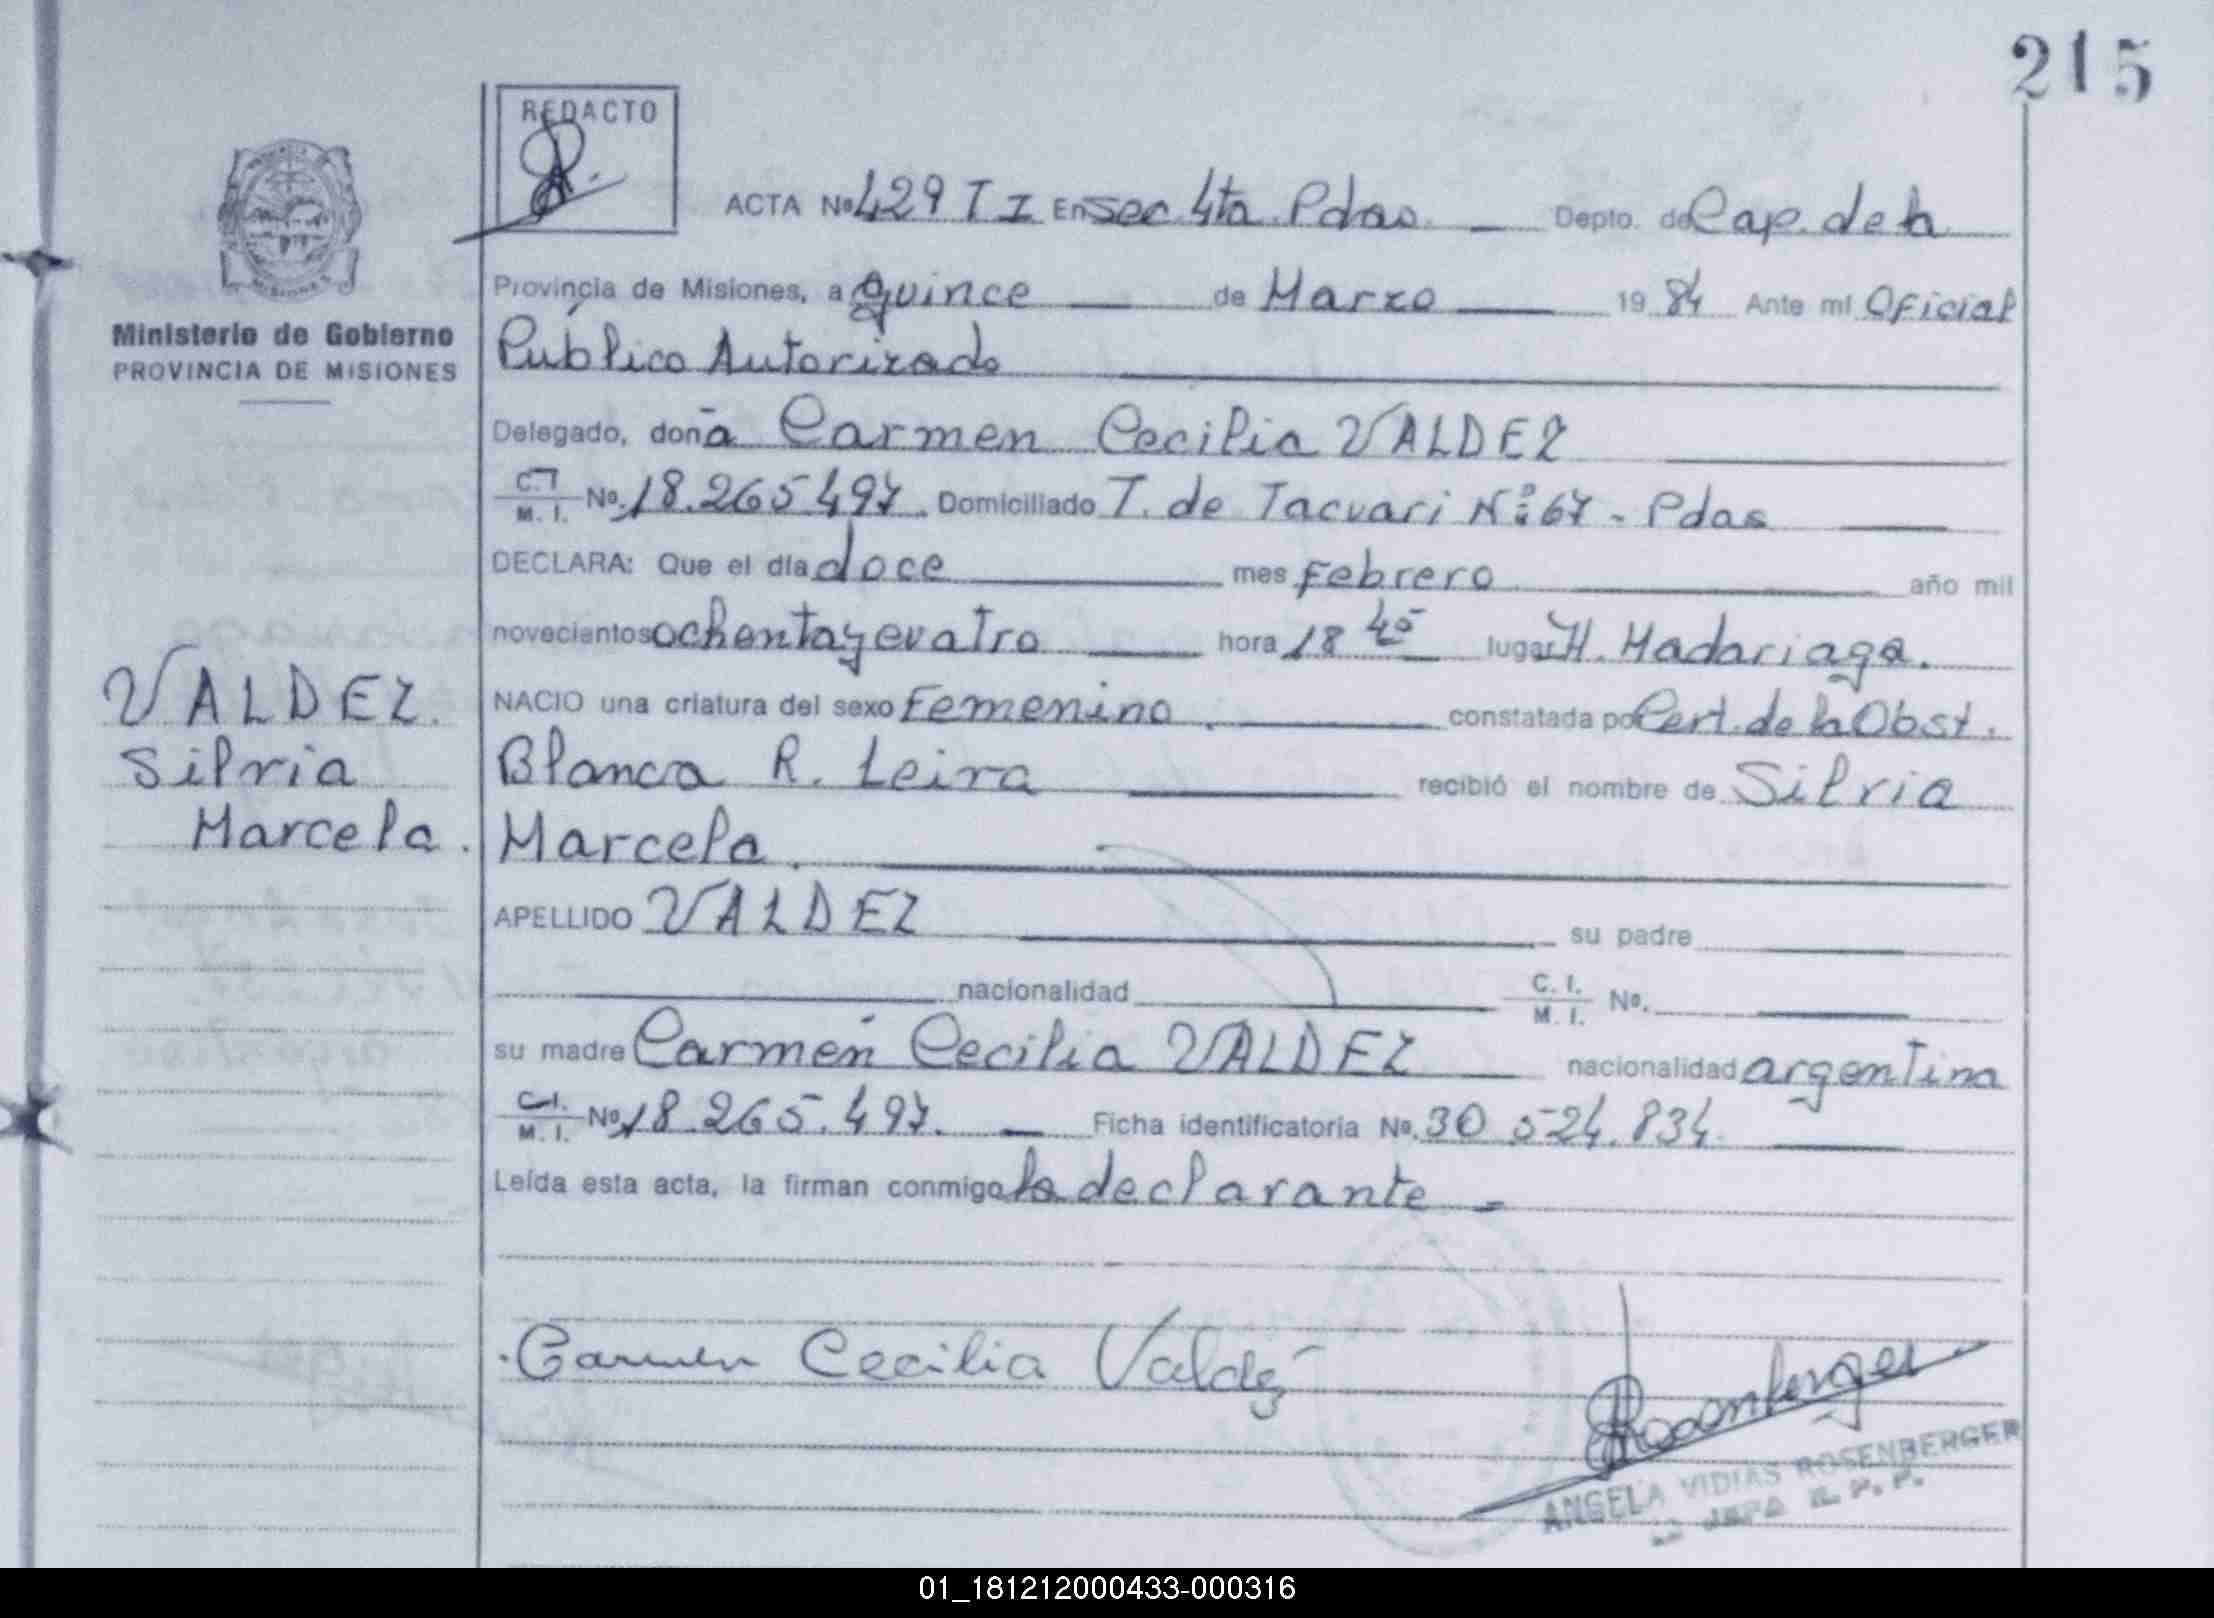 215
REDACTO
ACTA Nº 429 T I En Sec 4ta. Pdas. Depto. de Cap. de la
Provincia de Misiones, a quince de Marzo 1984 Ante mi Oficial
Ministerio de Gobierno
PROVINCIA DE MISIONES
Público Autorizado
Delegado, doña Carmen Cecilia VALDEZ
C.I. M. I. Nº. 18.265.497. Domiciliado T. de Tacuari Nº 67 - Pdas
DECLARA: Que el día doce mes Febrero año mil
novecientos ochenta y cuatro hora 18 45 lugar H. Madariaga.
VALDEZ.
Silvia
Marcela.
NACIO una criatura del sexo Femenino. constatada por Cert. de la Obst.
Blanca R. Leiva recibió el nombre de Silvia
Marcela.
APELLIDO VALDEZ su padre
nacionalidad C. I. M. I. Nº.
su madre Carmen Cecilia VALDEZ nacionalidad argentina
C.I. M. I. Nº 18.265.497. Ficha identificatoria Nº. 30 524.834.
Leída esta acta, la firman conmigo la declarante
Carmen Cecilia Valdez
Rosenberger
ANGELA VIDIAS ROSENBERGER
JEFA R. P. P.
01_181212000433-000316